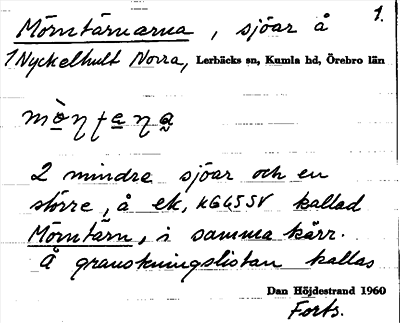 Mörntärnarna, sjöar å 1.
1 Nyckelhult Norra, Lerbäcks sn, Kumla hd, Örebro län
2 mindre sjöar och en
större, å ek, kallad
Mörntärn, i samma kärr.
Å granskningslistan kallas
Dan Höjdestrand 1960
Forts.